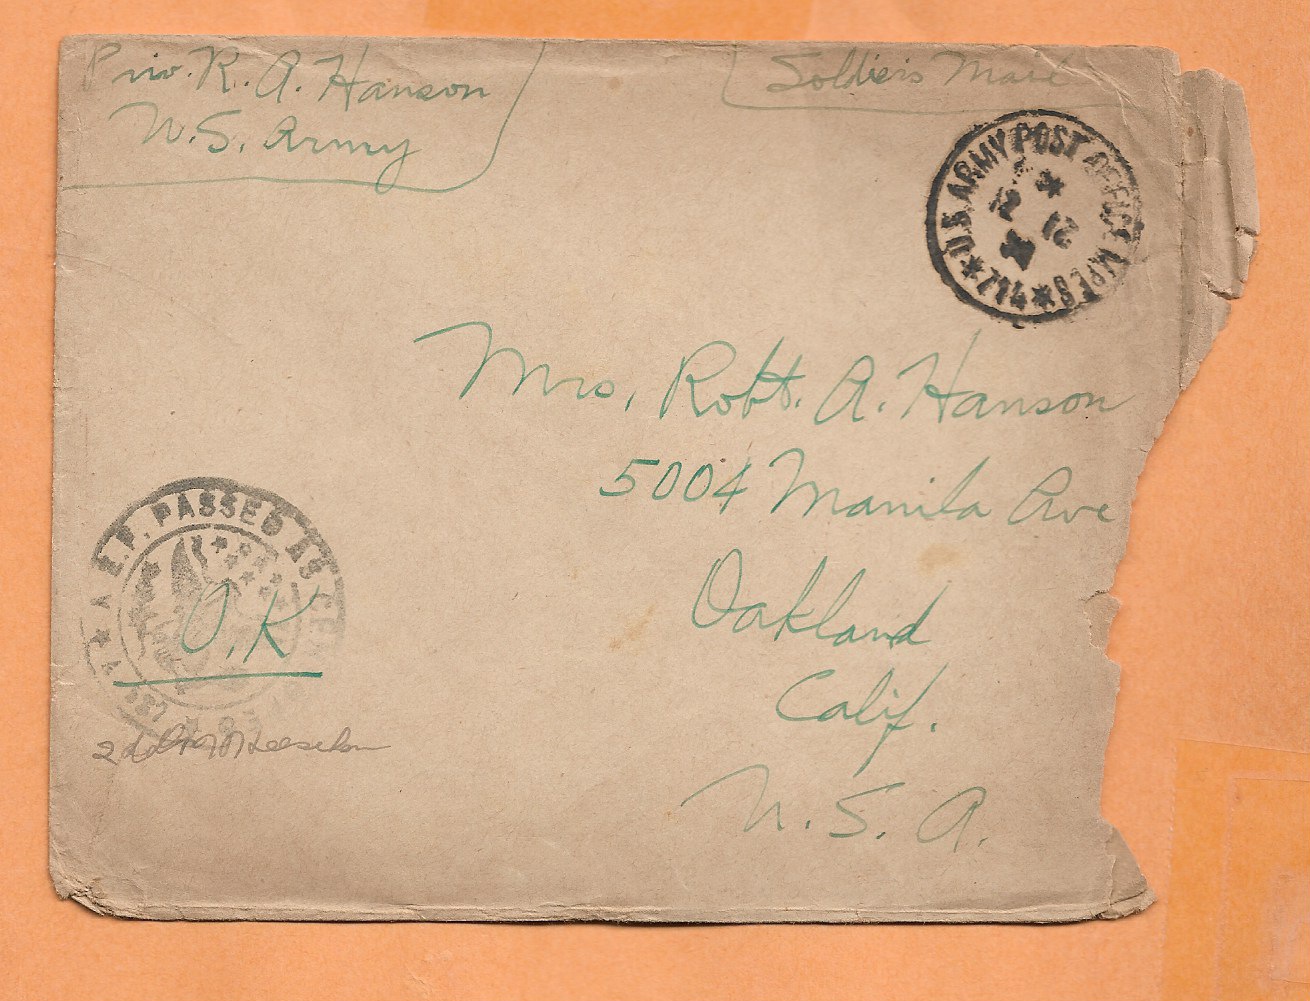 Priv. R. A. Hanson
U.S. Army
Soldiers Mail
★ U.S. ARMY POST OFFICE M.P.E.S ★
21
Mrs. Robt. A. Hanson
5004 Manila Ave
Oakland
Calif.
U. S. A.
A.E.F. PASSED AS
O.K
2d Lt